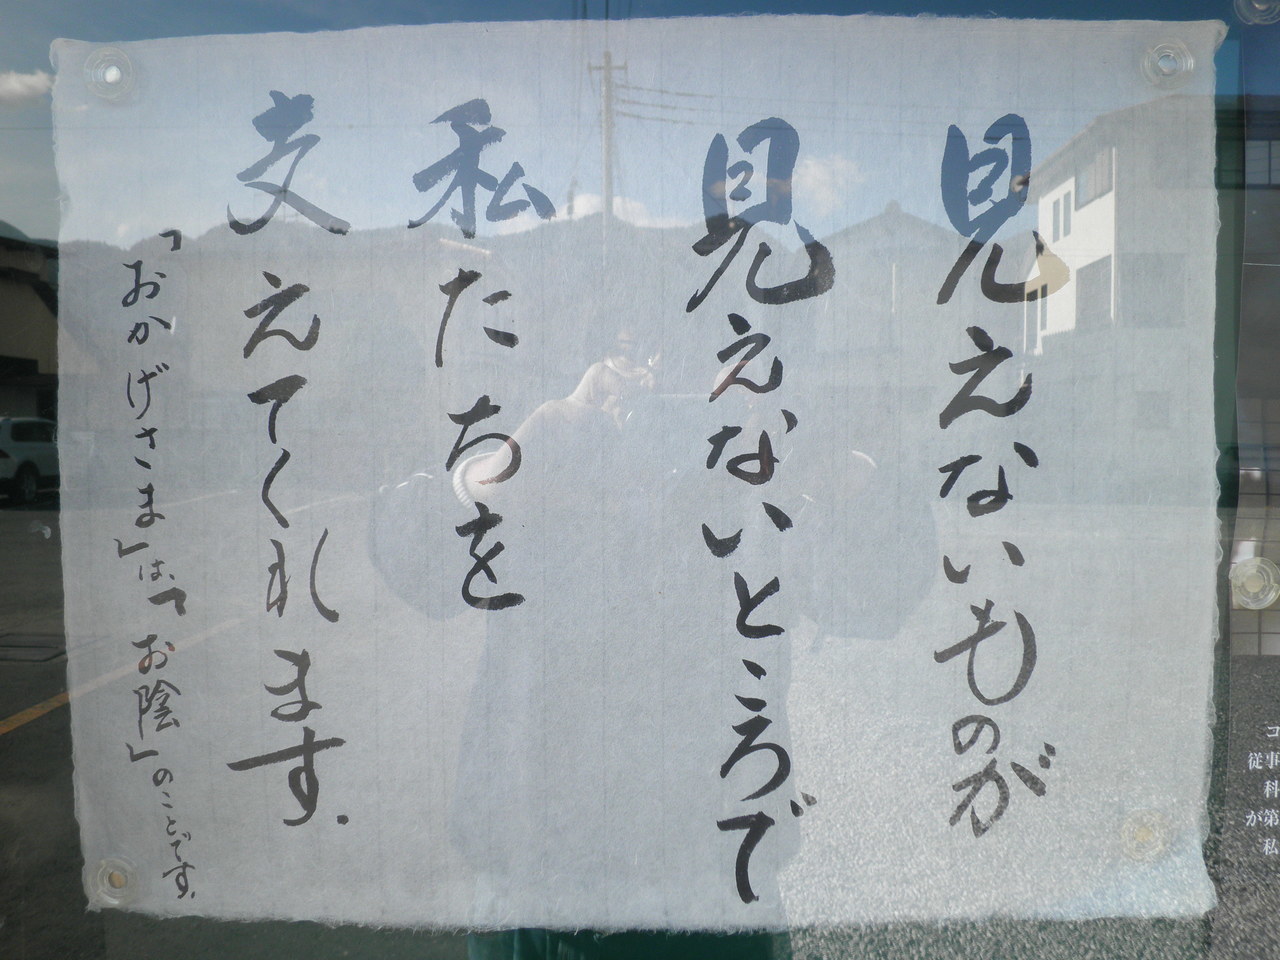 見えないものが
見えないところで
私たちを
支えてくれます.
「おかげさま」は、「お陰」のことです.
コ事科第私
従が